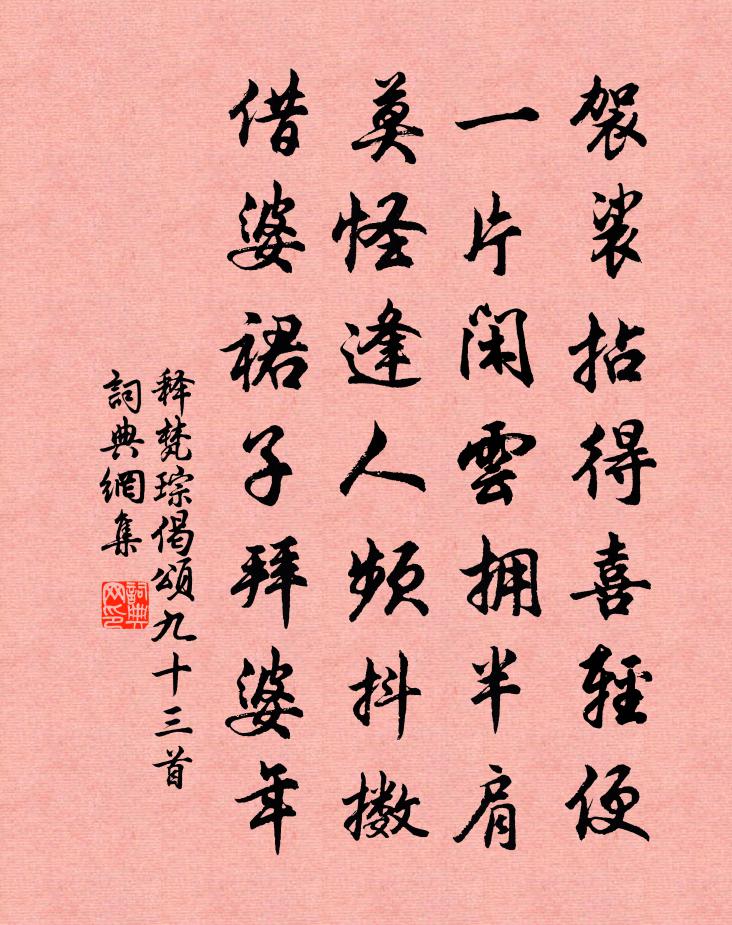 袈裟拈得喜輕便
一片閑雲拥半肩
莫怪逢人頻抖擻
借婆裙子拜婆年
释梵琮偈頌九十三首
詞典網集
詞典网印